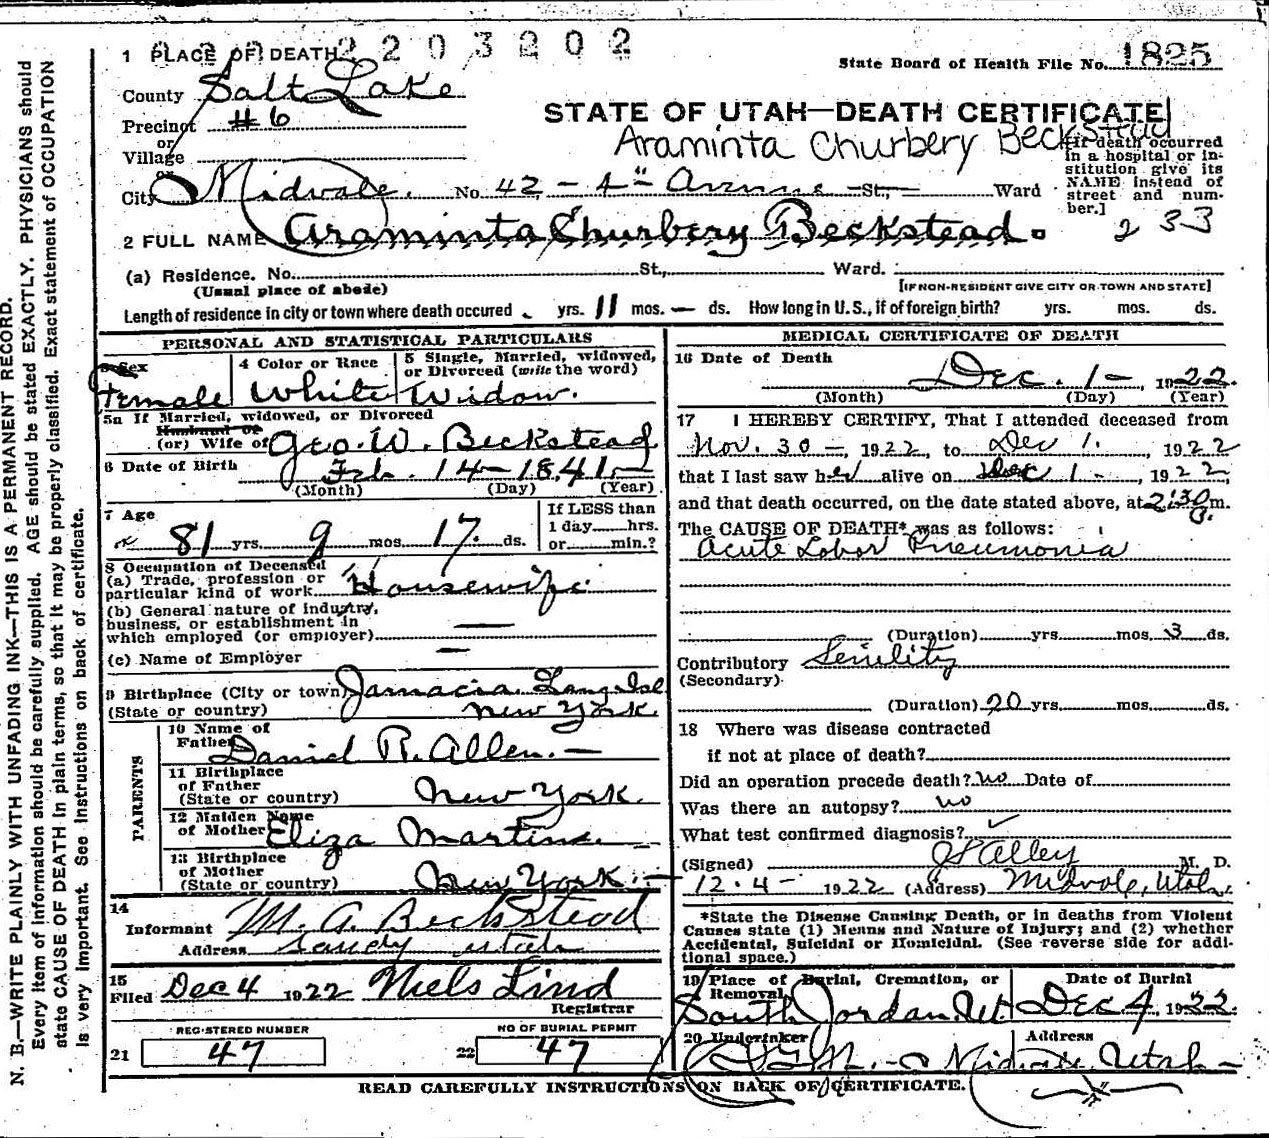 2203202
1 PLACE OF DEATH
State Board of Health File No. 1825
County Salt Lake
STATE OF UTAH—DEATH CERTIFICATE
Precinct #6
Araminta Churbery Beckstead
or
Village
[If death occurred in a hospital or institution give its NAME instead of street and number.]
or
City Midvale. No. 42 - 4th Avenue St., Ward
233
2 FULL NAME Araminta Churbery Beckstead.
(a) Residence. No. St., Ward.
(Usual place of abode)
[IF NON-RESIDENT GIVE CITY OR TOWN AND STATE]
Length of residence in city or town where death occured yrs. 11 mos. — ds. How long in U.S., if of foreign birth? yrs. mos. ds.
PERSONAL AND STATISTICAL PARTICULARS
3 Sex
Female
4 Color or Race
White
5 Single, Married, widowed, or Divorced (write the word)
Widow.
5a If Married, widowed, or Divorced
Husband of
(or) Wife of Geo. W. Beckstead
6 Date of Birth Feb. 14 - 1841
(Month) (Day) (Year)
7 Age
81 yrs. 9 mos. 17. ds.
If LESS than
1 day hrs.
or min.?
8 Occupation of Deceased
(a) Trade, profession or
particular kind of work Housewife
(b) General nature of industry,
business, or establishment in
which employed (or employer)
(c) Name of Employer —
9 Birthplace (City or town) Jamacia Long Isl
(State or country) New York.
PARENTS
10 Name of
Father Daniel R. Allen. —
11 Birthplace
of Father
(State or country) New York.
12 Maiden Name
of Mother Eliza Martine —
13 Birthplace
of Mother
(State or country) New York. —
14
Informant M. A. Beckstead
Address Sandy Utah
15
Filed Dec 4 1922 Niels Lind
Registrar
REGISTERED NUMBER
21 47
NO OF BURIAL PERMIT
22 47
MEDICAL CERTIFICATE OF DEATH
16 Date of Death
Dec. 1 - 1922.
(Month) (Day) (Year)
17 I HEREBY CERTIFY, That I attended deceased from
Nov. 30 -, 1922, to Dec 1. 1922
that I last saw her alive on Dec 1 -, 1922,
and that death occurred, on the date stated above, at 2:30 a.m.
The CAUSE OF DEATH* was as follows:
Acute Lobar Pneumonia
(Duration) yrs. mos. 3 ds.
Contributory Senility
(Secondary)
(Duration) 20 yrs. mos. ds.
18 Where was disease contracted
if not at place of death?
Did an operation precede death? no Date of
Was there an autopsy? no
What test confirmed diagnosis?
(Signed) Alley M. D.
12 - 4 - 1922 (Address) Midvale, Utah.
*State the Disease Causing Death, or in deaths from Violent
Causes state (1) Means and Nature of Injury; and (2) whether
Accidental, Suicidal or Homicidal. (See reverse side for addi-
tional space.)
19 Place of Burial, Cremation, or
Removal
South Jordan Ut
Date of Burial
Dec 4, 1922.
20 Undertaker
Address
Midvale Utah
READ CAREFULLY INSTRUCTIONS ON BACK OF CERTIFICATE.
N. B.—WRITE PLAINLY WITH UNFADING INK—THIS IS A PERMANENT RECORD.
Every item of information should be carefully supplied. AGE should be stated EXACTLY. PHYSICIANS should
state CAUSE OF DEATH in plain terms, so that it may be properly classified. Exact statement of OCCUPATION
is very important. See instructions on back of certificate.